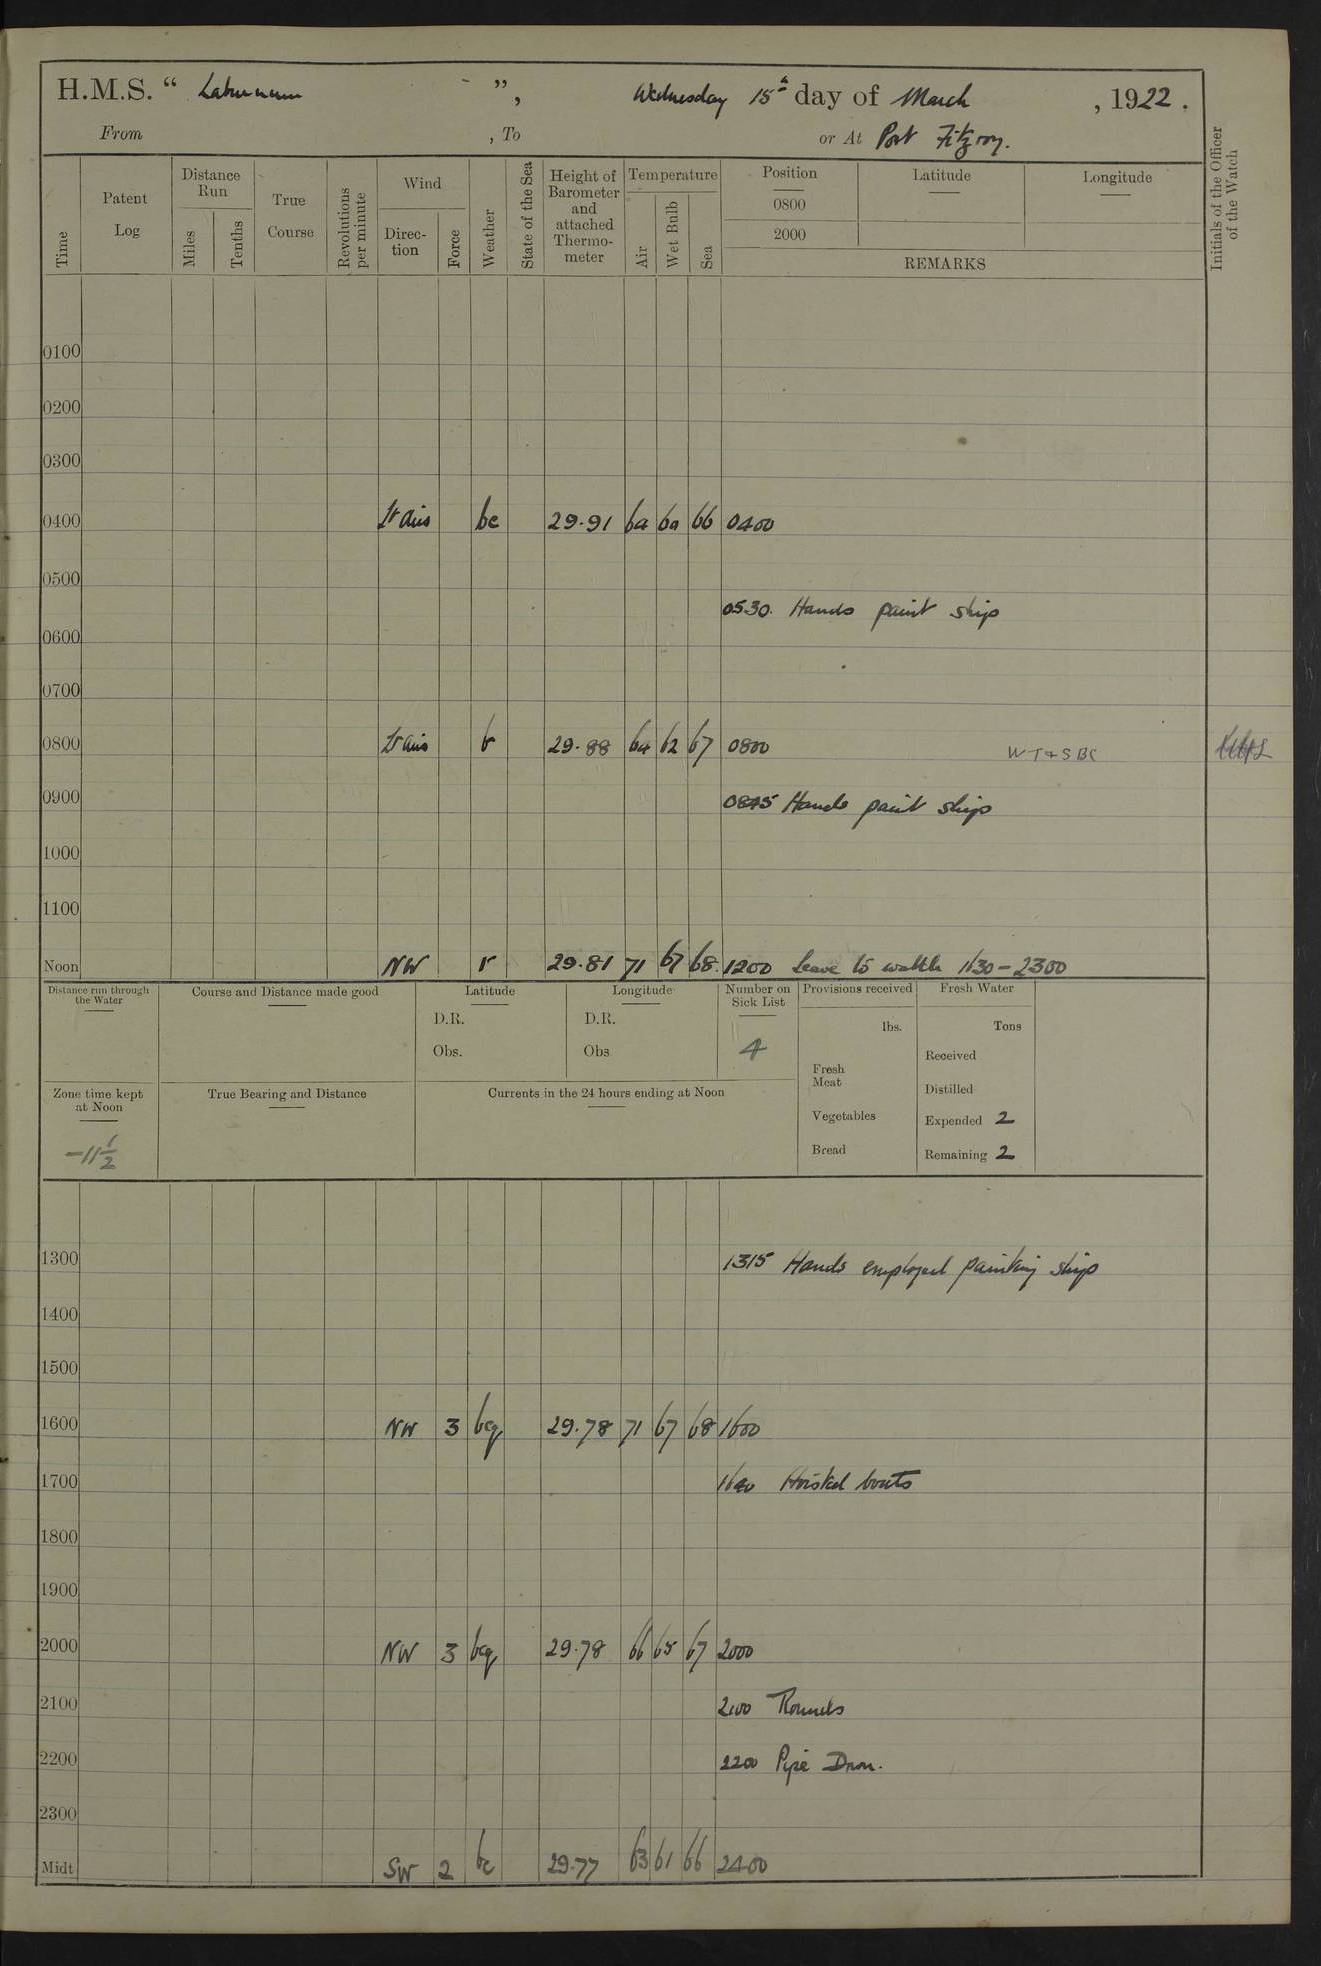 H.M.S. “ Laburnum ”, Wednesday 15th day of March , 1922.
From , To or At Port Fitzroy.
Time
Patent Log
Distance Run
Miles
Tenths
True Course
Revolutions per minute
Wind
Direction
Force
Weather
State of the Sea
Height of Barometer and attached Thermometer
Temperature
Air
Wet Bulb
Sea
Position
0800
2000
Latitude
Longitude
REMARKS
Initials of the Officer of the Watch
0100
0200
0300
0400 Lt airs bc 29.91 64 60 66 0400
0500
0530. Hands paint ship
0600
0700
0800 Lt airs b 29.88 64 62 67 0800 W T & S B C
0900
0845 Hands paint ship
1000
1100
Noon NW 29.81 71 67 68 1200 Leave to watch 1130 – 2300
Distance run through the Water
Course and Distance made good
Latitude
D.R.
Obs.
Longitude
D.R.
Obs
Number on Sick List
4
Provisions received
lbs.
Fresh Meat
Vegetables
Bread
Fresh Water
Tons
Received
Distilled
Expended 2
Remaining 2
Zone time kept at Noon
-11 1/2
True Bearing and Distance
Currents in the 24 hours ending at Noon
1300 1315 Hands employed painting ship
1400
1500
1600 NW 3 bcq 29.78 71 67 68 1600
1700 1640 Hoisted boats
1800
1900
2000 NW 3 bcq 29.78 66 65 67 2000
2100 2100 Rounds
2200 2200 Pipe Down.
2300
Midt SW 2 bc 29.77 63 61 66 2400